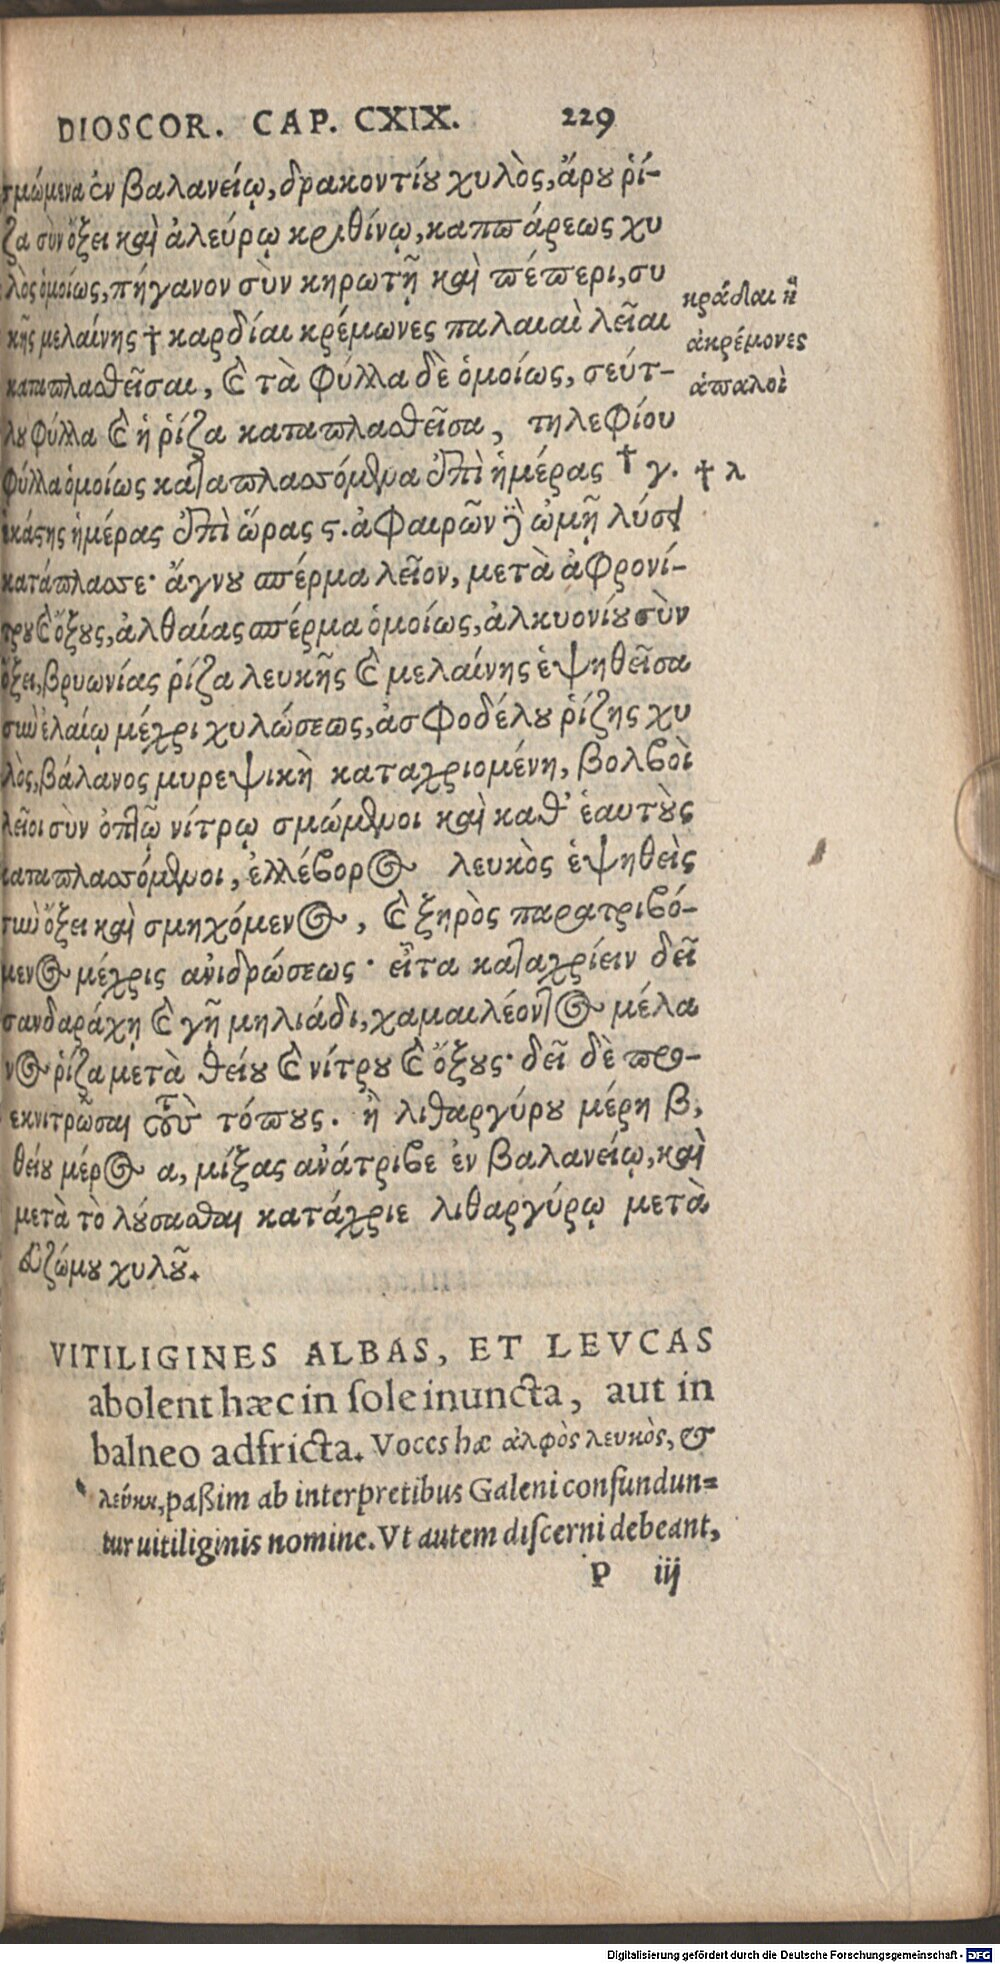 DIOSCOR. CAP. CXIX. 229
σμώμενα ἐν βαλανείῳ, δρακοντίου χυλὸς, ἄρου ῥί-
ζα σὺν ὄξει καὶ ἀλεύρῳ κριθίνῳ, καππάρεως χυ
λὸς ὁμοίως, πήγανον σὺν κηρωτῇ καὶ πέπερι, συ
κῆς μελαίνης † καρδίαι κρέμωνες παλαιαὶ λεῖαι
κράδαι ἢ
ἀκρέμονες
ἁπαλοὶ
καταπλασθεῖσαι, καὶ τὰ φύλλα δὲ ὁμοίως, σεύτ-
λου φύλλα καὶ ἡ ῥίζα καταπλασθεῖσα, τηλεφίου
φύλλα ὁμοίως καταπλασσόμενα ἐπὶ ἡμέρας † γ.
† λ
ἑκάστης ἡμέρας ἐπὶ ὥρας ς. ἀφαιρῶν ὠμῇ λύσει
κατάπλασσε· ἄγνου σπέρμα λεῖον, μετὰ ἀφρονί-
τρου καὶ ὄξους, ἀλθαίας σπέρμα ὁμοίως, ἀλκυονίου σὺν
ὄξει, βρυωνίας ῥίζα λευκῆς καὶ μελαίνης ἑψηθεῖσα
σὺν ἐλαίῳ μέχρι χυλώσεως, ἀσφοδέλου ῥίζης χυ
λὸς, βάλανος μυρεψικὴ καταχριομένη, βολβοὶ
λεῖοι σὺν ὀπτῷ νίτρῳ σμώμενοι καὶ καθ' ἑαυτοὺς
καταπλασσόμενοι, ἐλλέβορος λευκὸς ἑψηθεὶς
σὺν ὄξει καὶ σμηχόμενος, καὶ ξηρὸς παρατριβό-
μενος μέχρις ἀνιδρώσεως· εἶτα καταχρίειν δεῖ
σανδαράχῃ καὶ γῇ μηλιάδι, χαμαιλέοντος μέλα
νος ῥίζα μετὰ θείου καὶ νίτρου καὶ ὄξους· δεῖ δὲ προ-
εκνιτρῶσαι τοὺς τόπους. ἢ λιθαργύρου μέρη β,
θείου μέρος α, μίξας ἀνάτριβε ἐν βαλανείῳ, καὶ
μετὰ τὸ λούσασθαι κατάχριε λιθαργύρῳ μετὰ
εὐζώμου χυλοῦ.
VITILIGINES ALBAS, ET LEVCAS
abolent hæc in ſole inuncta, aut in
balneo adfricta. Voces hæ ἀλφὸς λευκὸς, &
λεύκη, paßim ab interpretibus Galeni confundun=
tur uitiliginis nomine. Vt autem diſcerni debeant,
P iij
Digitalisierung gefördert durch die Deutsche Forschungsgemeinschaft - DFG